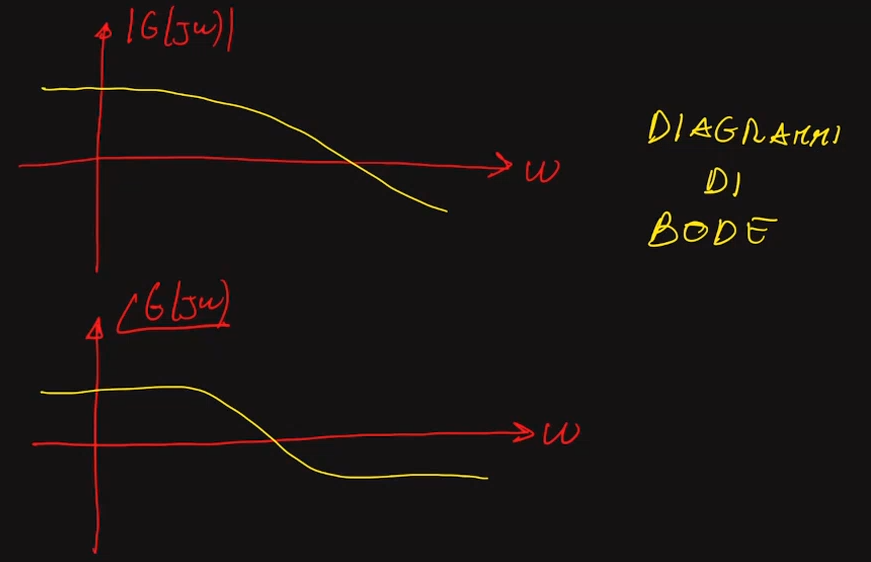 |G(jw)|
w
DIAGRAMMI
DI
BODE
∠G(jw)
w